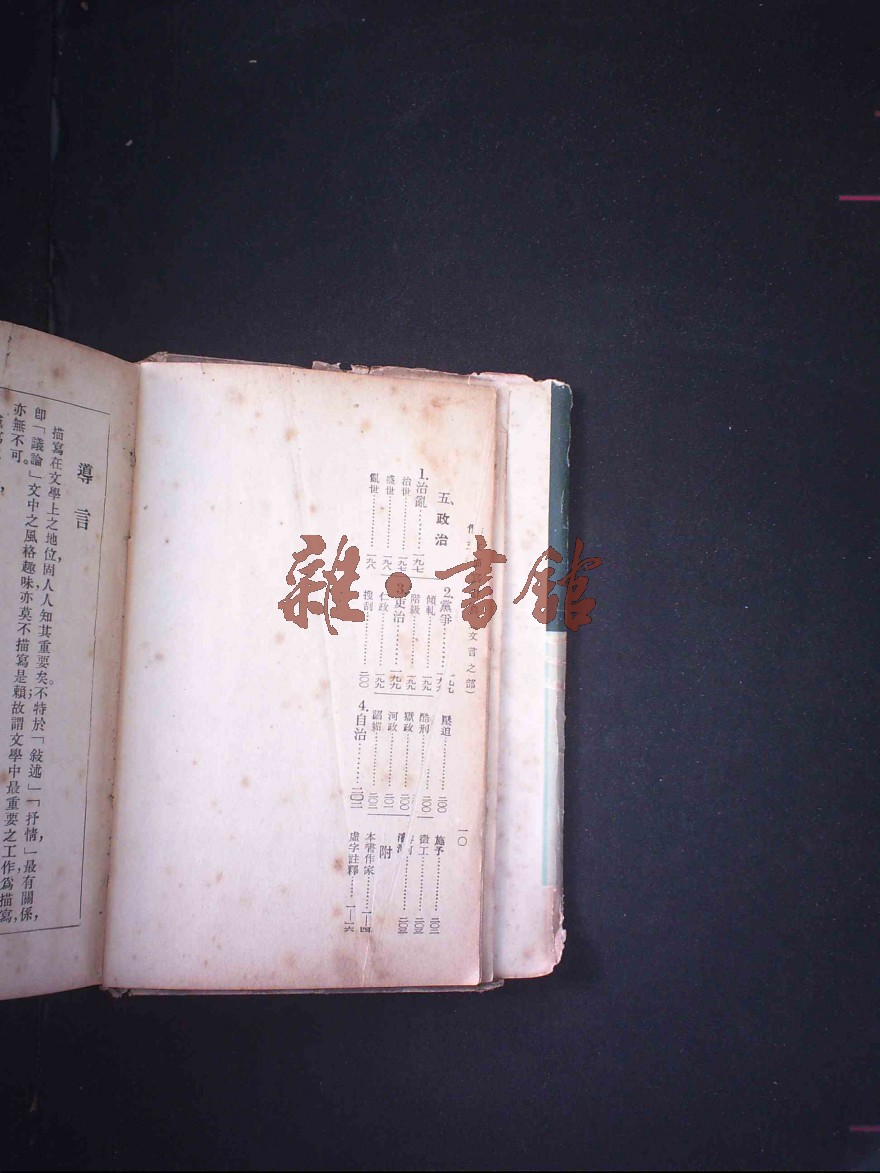 文言之部）
一〇
五、政治
1.治亂………一九七
治世………一九七
盛世………一九八
亂世………一九八
2.黨爭………
傾軋………一九九
階級………一九九
3.吏治………一九九
仁政………一九九
搜刮………二〇〇
壓迫………二〇〇
酷刑………二〇〇
獄政………二〇〇
河政………二〇一
諂媚………二〇二
4.自治………二〇二
施予………二〇二
徵工………二〇三
河………
………二〇三
附
本書作家………一—四
虛字註釋………一—一六
導言
描寫在文學上之地位，固人人知其重要矣。不特於「敍述」「抒情」，最有關係，
卽「議論」文中之風格趣味，亦莫不描寫是賴；故謂文學中最重要之工作爲描寫，
亦無不可。
雜·書館